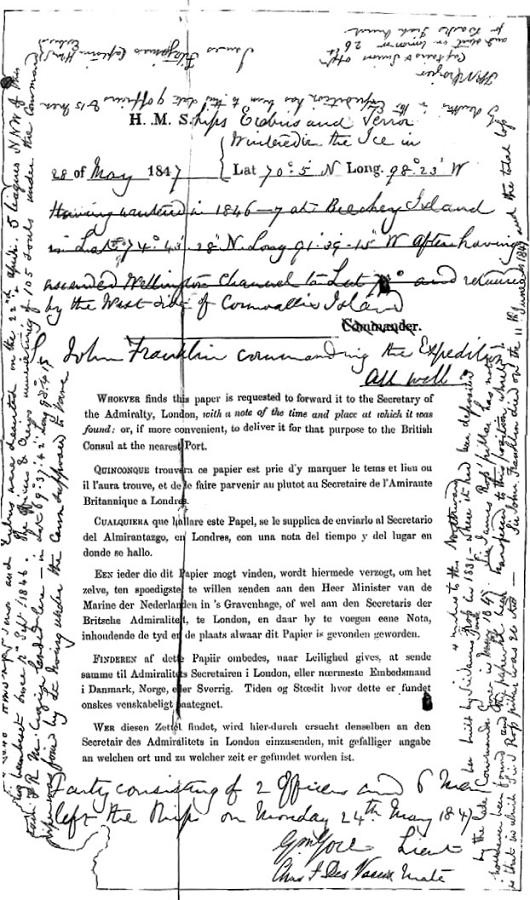 H. M. S. hips Erebus and Terror
Wintered in the Ice in
28 of May 1847 Lat 70° 5' N Long. 98° 23' W
Having wintered in 1846-7 at Beechey Island
in Lat 74° 43' 28" N. Long 91° 39' 15" W After having
ascended Wellington Channel to Lat 77° and returned
by the West side of Cornwallis Island
Commander.
John Franklin commanding the Expedition
All well
WHOEVER finds this paper is requested to forward it to the Secretary of
the Admiralty, London, with a note of the time and place at which it was
found: or, if more convenient, to deliver it for that purpose to the British
Consul at the nearest Port.
QUINCONQUE trouvera ce papier est prié d'y marquer le tems et lieu ou
il l'aura trouvé, et de le faire parvenir au plutot au Secretaire de l'Amirauté
Britannique à Londres.
CUALQUIERA que hallare este Papel, se le suplica de enviarlo al Secretario
del Almirantazgo, en Londrés, con una nota del tiempo y del lugar en
donde se halló.
EEN ieder die dit Papier mogt vinden, wordt hiermede verzogt, om het
zelve, ten spoedigste, te willen zenden aan den Heer Minister van de
Marine der Nederlanden in 's Gravenhage, of wel aan den Secretaris der
Britsche Admiraliteit, te London, en daar by te voegen eene Nota,
inhoudende de tyd en de plaats alwaar dit Papier is gevonden geworden.
FINDEREN af dette Papiir ombedes, naar Leilighed gives, at sende
samme til Admiralitets Secretairen i London, eller nærmeste Embedsmand
i Danmark, Norge, eller Sverrig. Tiden og Stædit hvor dette er fundet
önskes venskabeligt paategnet.
WER diesen Zettel findet, wird hier-durch ersucht denselben an den
Secretair des Admiralitets in London einzusenden, mit gefälliger angabe
an welchen ort und zu welcher zeit er gefundet worden ist.
Party consisting of 2 Officers and 6 Men
left the Ships on Monday 24th May 1847
Gm Gore Lieut
Chas F Des Voeux Mate
were deserted on the 22nd April 5 leagues NNW of this
having been beset since 12th Sept 1846. The Officers & Crews consisting of 105 souls under the command
of Captain F. R. M. Crozier landed here in Lat 69° 37' 42" Long 98° 41'
This paper was found by Lt Irving under the Cairn supposed to have
been built by Sir James Ross in 1831 where it had been deposited
4 miles to the Northward
by the late Commander Gore in June 1847. Sir James Ross' pillar has not
however been found and the paper has been transferred to this position which
is that in which Sir J Ross pillar was erected
Sir John Franklin died on the 11th June 1847 and the total loss
by deaths in the Expedition has been to this date 9 officers & 15 men
James Fitzjames Captain HMS
Erebus
F R M Crozier
Captain & Senior Offr
and start on tomorrow 26th
for Backs Fish River